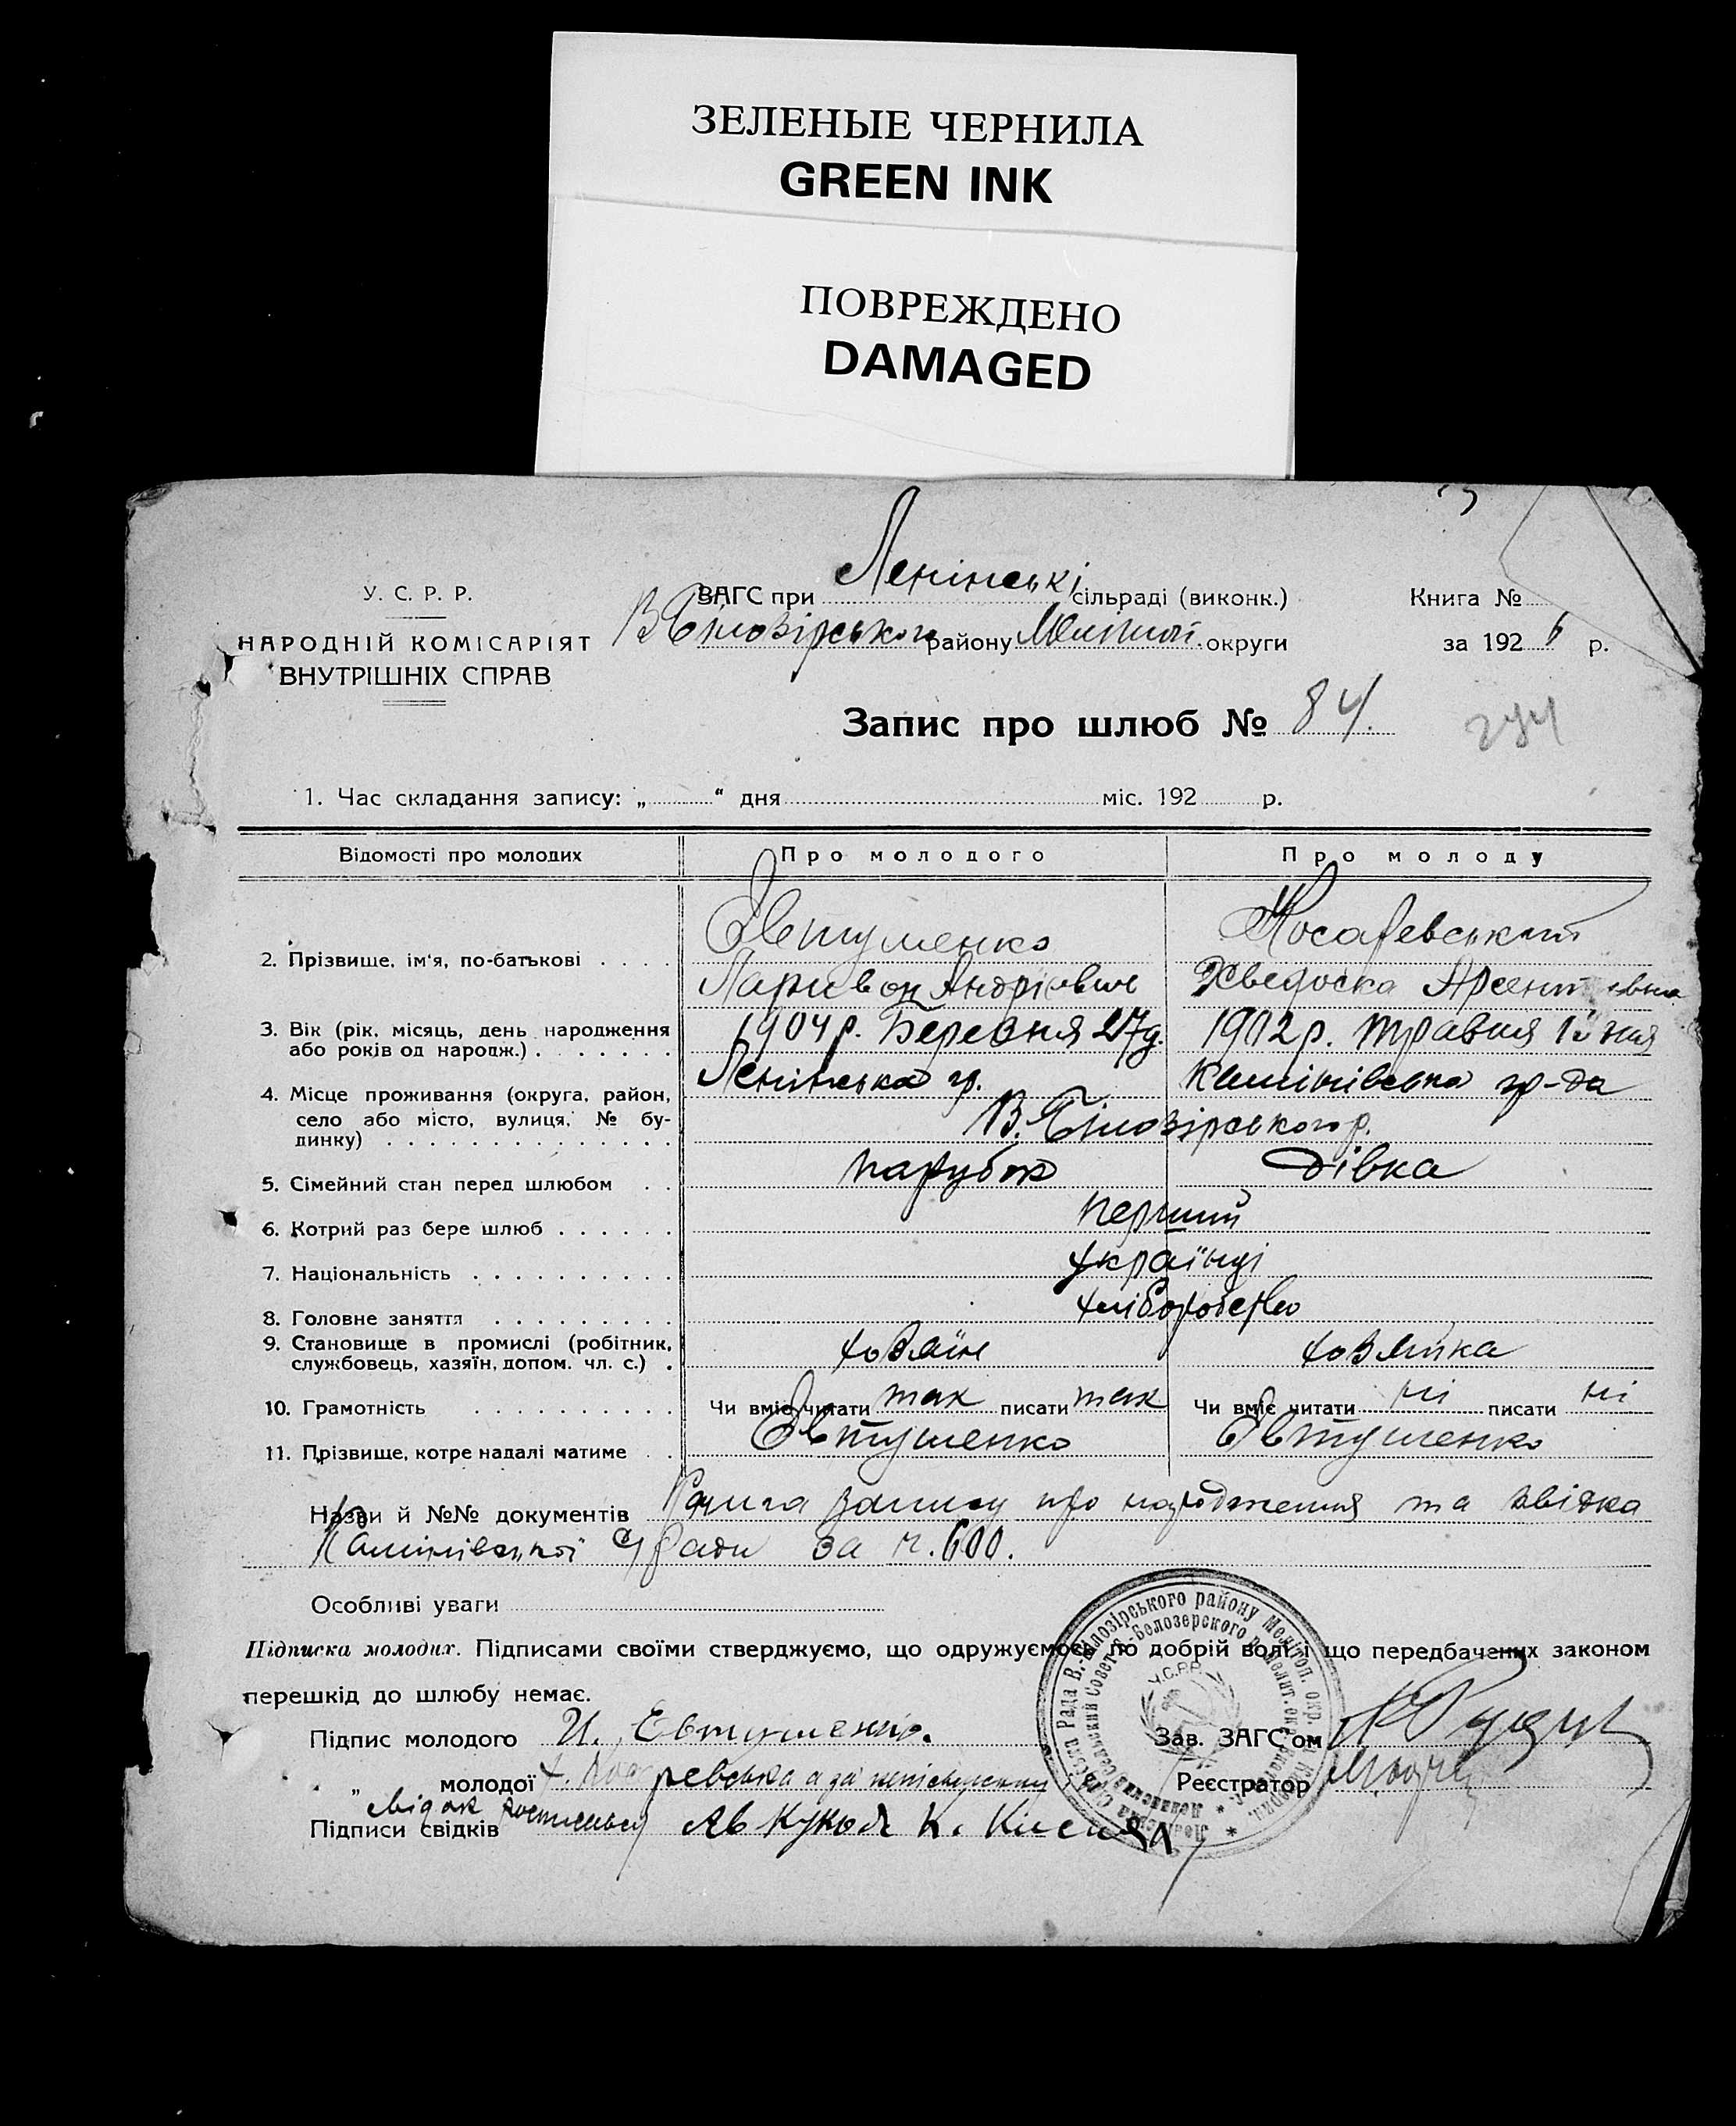 ЗЕЛЕНЫЕ ЧЕРНИЛА
GREEN INK
ПОВРЕЖДЕНО
DAMAGED
У. С. Р. Р.
НАРОДНІЙ КОМІСАРІЯТ
ВНУТРІШНІХ СПРАВ
ЗАГС при Ленінські сільраді (виконк.)
В Білозірського району округи
Книга №
за 1926 р.
Запис про шлюб № 84.
1. Час складання запису: „ “ дня міс. 192 р.
Відомості про молодих Про молодого Про молоду
2. Прізвище, ім'я, по-батькові . . . .
Євтушенко
Ларивон Андрієвич Хведоска
3. Вік (рік, місяць, день народження
або років од народж.) . . . . . . .
1904 р. Березня 27 д. 1902 р. травня
4. Місце проживання (округа, район,
село або місто, вулиця, № бу-
динку) . . . . . . . . . . . . . .
Ленінська гр. гр-да
В. Білозірського р.
5. Сімейний стан перед шлюбом . . парубок дівка
6. Котрий раз бере шлюб . . . . . . перший
7. Національність . . . . . . . . . . українці
8. Головне заняття . . . . . . . . . хліборобство
9. Становище в промислі (робітник,
службовець, хазяїн, допом. чл. с.) .
хозяїн хозяйка
10. Грамотність . . . . . . . . . . Чи вміє читати так писати так Чи вміє читати ні писати ні
11. Прізвище, котре надалі матиме . . Євтушенко Євтушенко
Назви й №№ документів Книга запису про народження та звідка
с/ради за ч. 600.
Особливі уваги
Підписка молодих. Підписами своїми стверджуємо, що одружуємось по добрій волі і що передбачених законом
перешкід до шлюбу немає.
Підпис молодого И. Евтушенко. Зав. ЗАГС'ом
„ молодої Реєстратор
Підписи свідків
У.С.Р.Р.